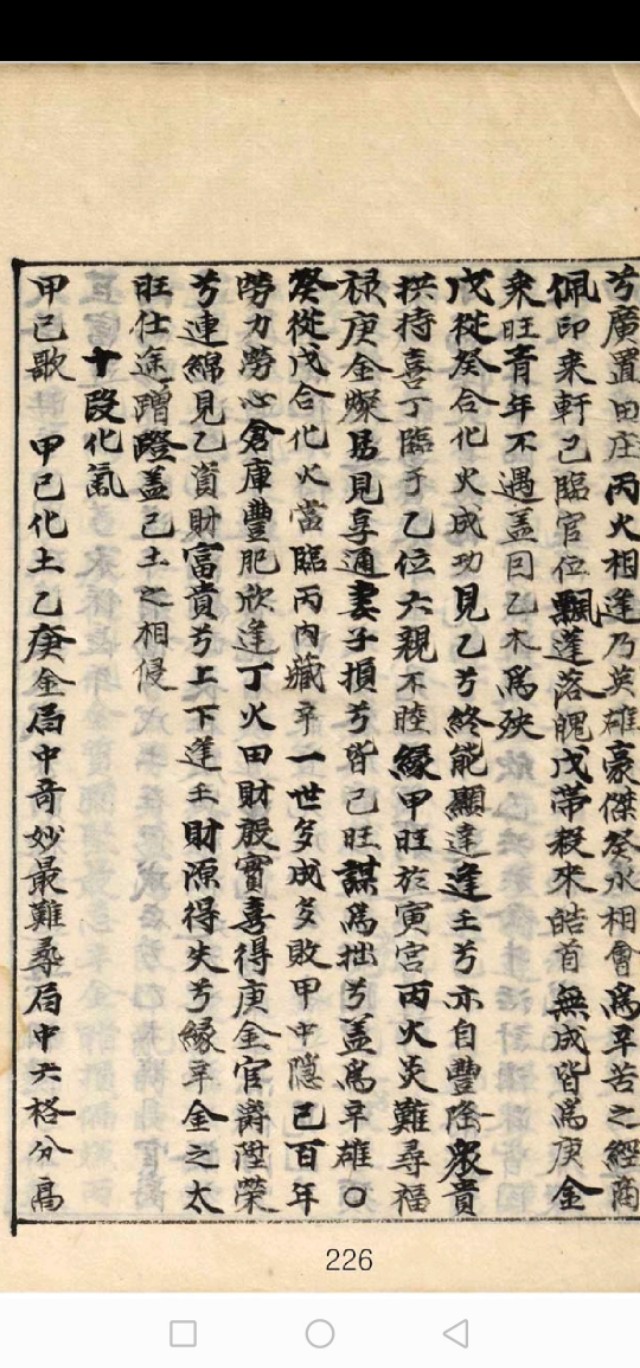 兮廣置田庄丙火相逢乃英雄豪傑癸水相會爲辛苦之經商
佩印乘軒己臨官位飄蓬落魄戊帶殺來皓首無成皆爲庚金
乘旺青年不遇盖因乙木爲殃
戊從癸合化火成功見乙兮終能顯達逢壬兮亦自豐隆衆貴
拱持喜丁臨于乙位六親不睦緣甲旺於寅宮丙火炎難尋福
祿庚金燦易見享通妻子損兮皆己旺謀爲拙兮盖爲辛雄〇
癸從戊合化火當臨丙內藏辛一世多成多敗甲中隱己百年
勞力勞心倉庫豐肥欣逢丁火田財殷實喜得庚金官爵陞榮
兮連綿見乙資財富貴兮上下逢壬財源得失兮緣辛金之太
旺仕途蹭蹬盖己土之相侵
十段化氣
甲己歌 甲己化土乙庚金局中奇妙最難尋局中六格分高
226